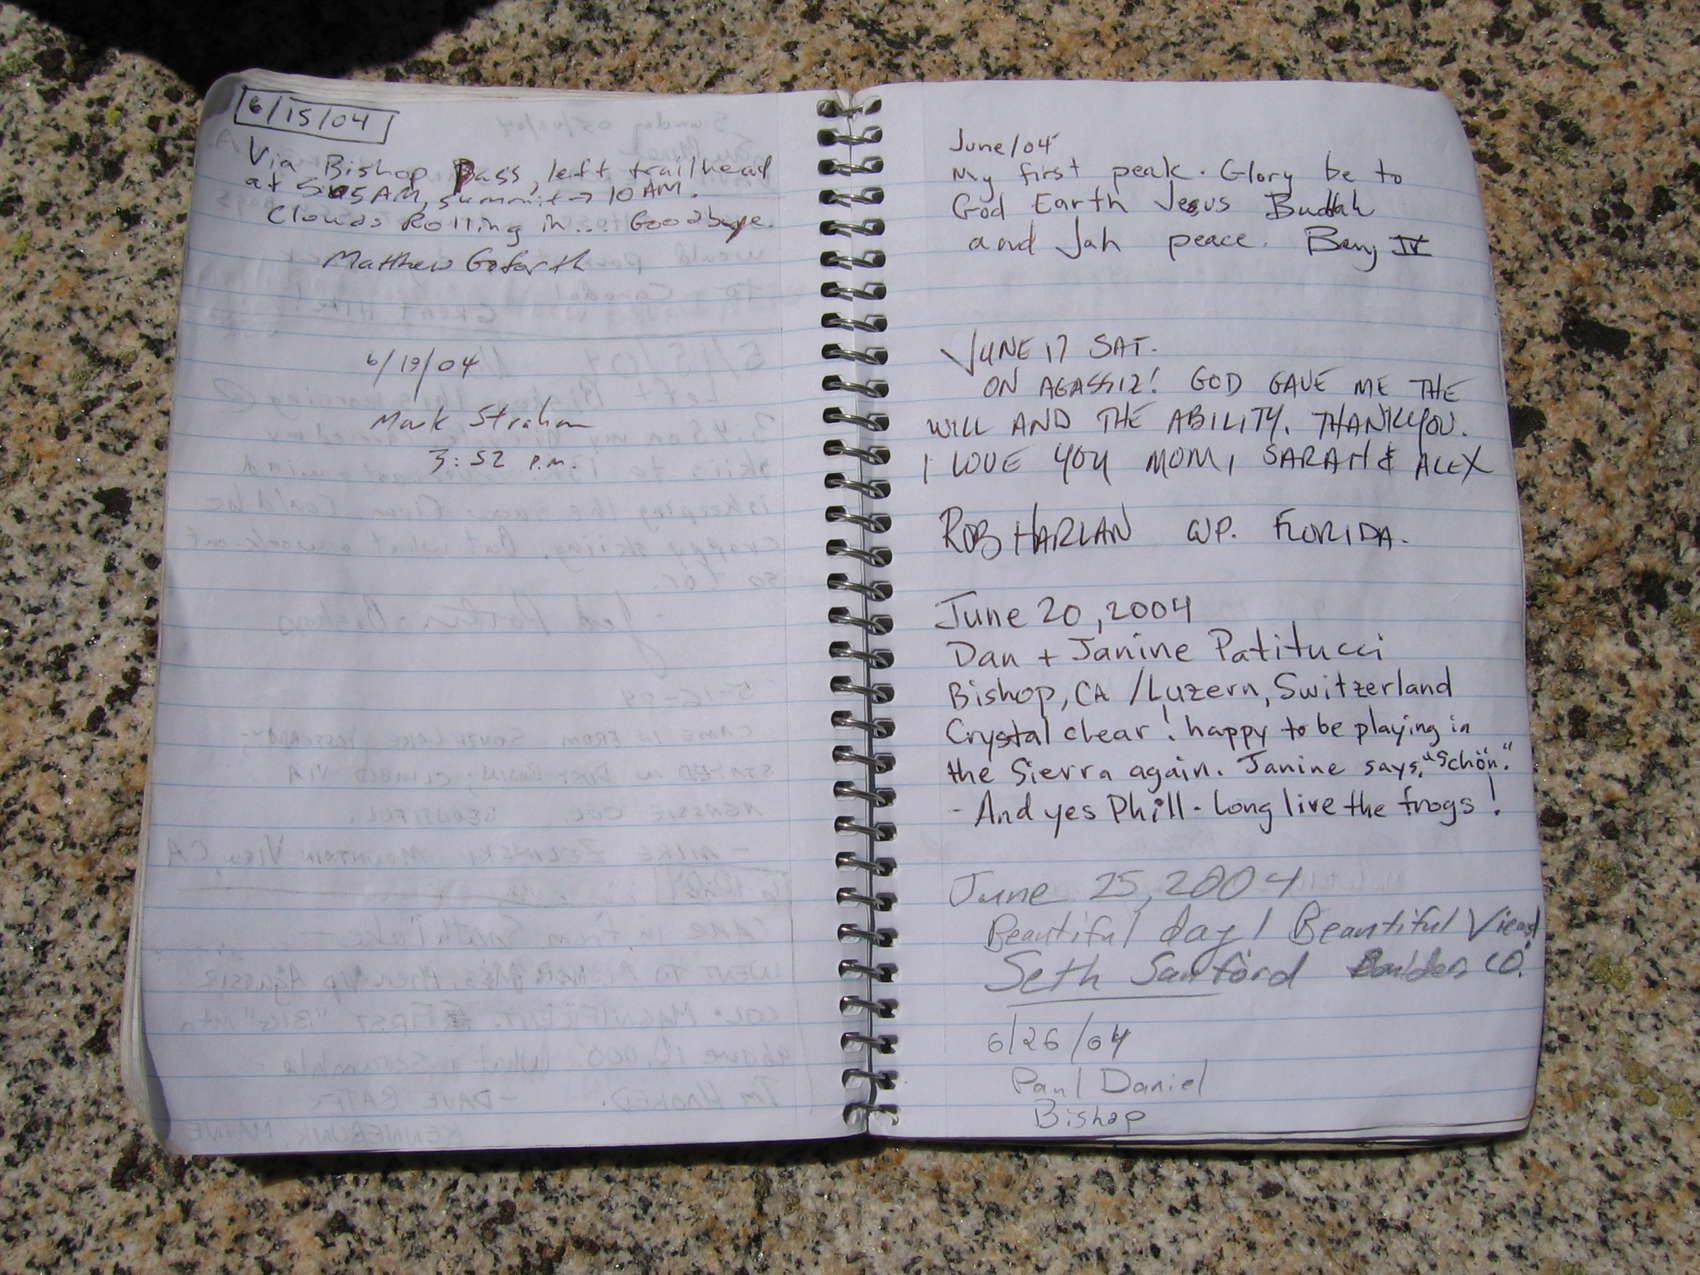 6/15/04
Via Bishop Pass, left trailhead
at 5:05AM, summit → 10 AM.
Clouds Rolling in... Goodbye.
Matthew Goforth
6/19/04
Mark Strahan
3:52 p.m.
June/04
My first peak. Glory be to
God Earth Jesus Buddah
and Jah peace. IV
JUNE 17 SAT.
ON AGASSIZ! GOD GAVE ME THE
WILL AND THE ABILITY. THANKYOU.
I LOVE YOU MOM, SARAH & ALEX
ROB HARLAN W.P. FLORIDA.
June 20, 2004
Dan + Janine Patitucci
Bishop, CA / Luzern, Switzerland
Crystal clear! happy to be playing in
the Sierra again. Janine says, "Schön."
- And yes Phill - Long live the frogs!
June 25, 2004
Beautiful day! Beautiful Views!
Seth Sanford Boulder, CO.
6/26/04
Paul Daniel
Bishop